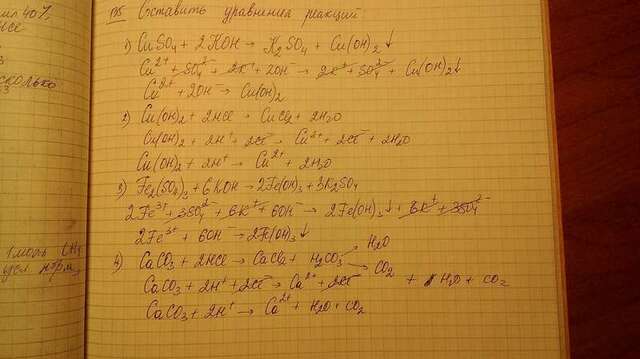 мл 40%
№5 Составить уравнения реакций:
1) CuSO₄ + 2KOH → K₂SO₄ + Cu(OH)₂↓
Cu²⁺ + SO₄²⁻ + 2K⁺ + 2OH⁻ → 2K⁺ + SO₄²⁻ + Cu(OH)₂↓
Cu²⁺ + 2OH⁻ → Cu(OH)₂
2) Cu(OH)₂ + 2HCl → CuCl₂ + 2H₂O
Cu(OH)₂ + 2H⁺ + 2Cl⁻ → Cu²⁺ + 2Cl⁻ + 2H₂O
Cu(OH)₂ + 2H⁺ → Cu²⁺ + 2H₂O
3) Fe₂(SO₄)₃ + 6KOH → 2Fe(OH)₃ + 3K₂SO₄
2Fe³⁺ + 3SO₄²⁻ + 6K⁺ + 6OH⁻ → 2Fe(OH)₃↓ + 6K⁺ + 3SO₄²⁻
2Fe³⁺ + 6OH⁻ → 2Fe(OH)₃↓
4) CaCO₃ + 2HCl → CaCl₂ + H₂CO₃ H₂O
CO₂
CaCO₃ + 2H⁺ + 2Cl⁻ → Ca²⁺ + 2Cl⁻ + H₂O + CO₂
CaCO₃ + 2H⁺ → Ca²⁺ + H₂O + CO₂
сколько
1 моль